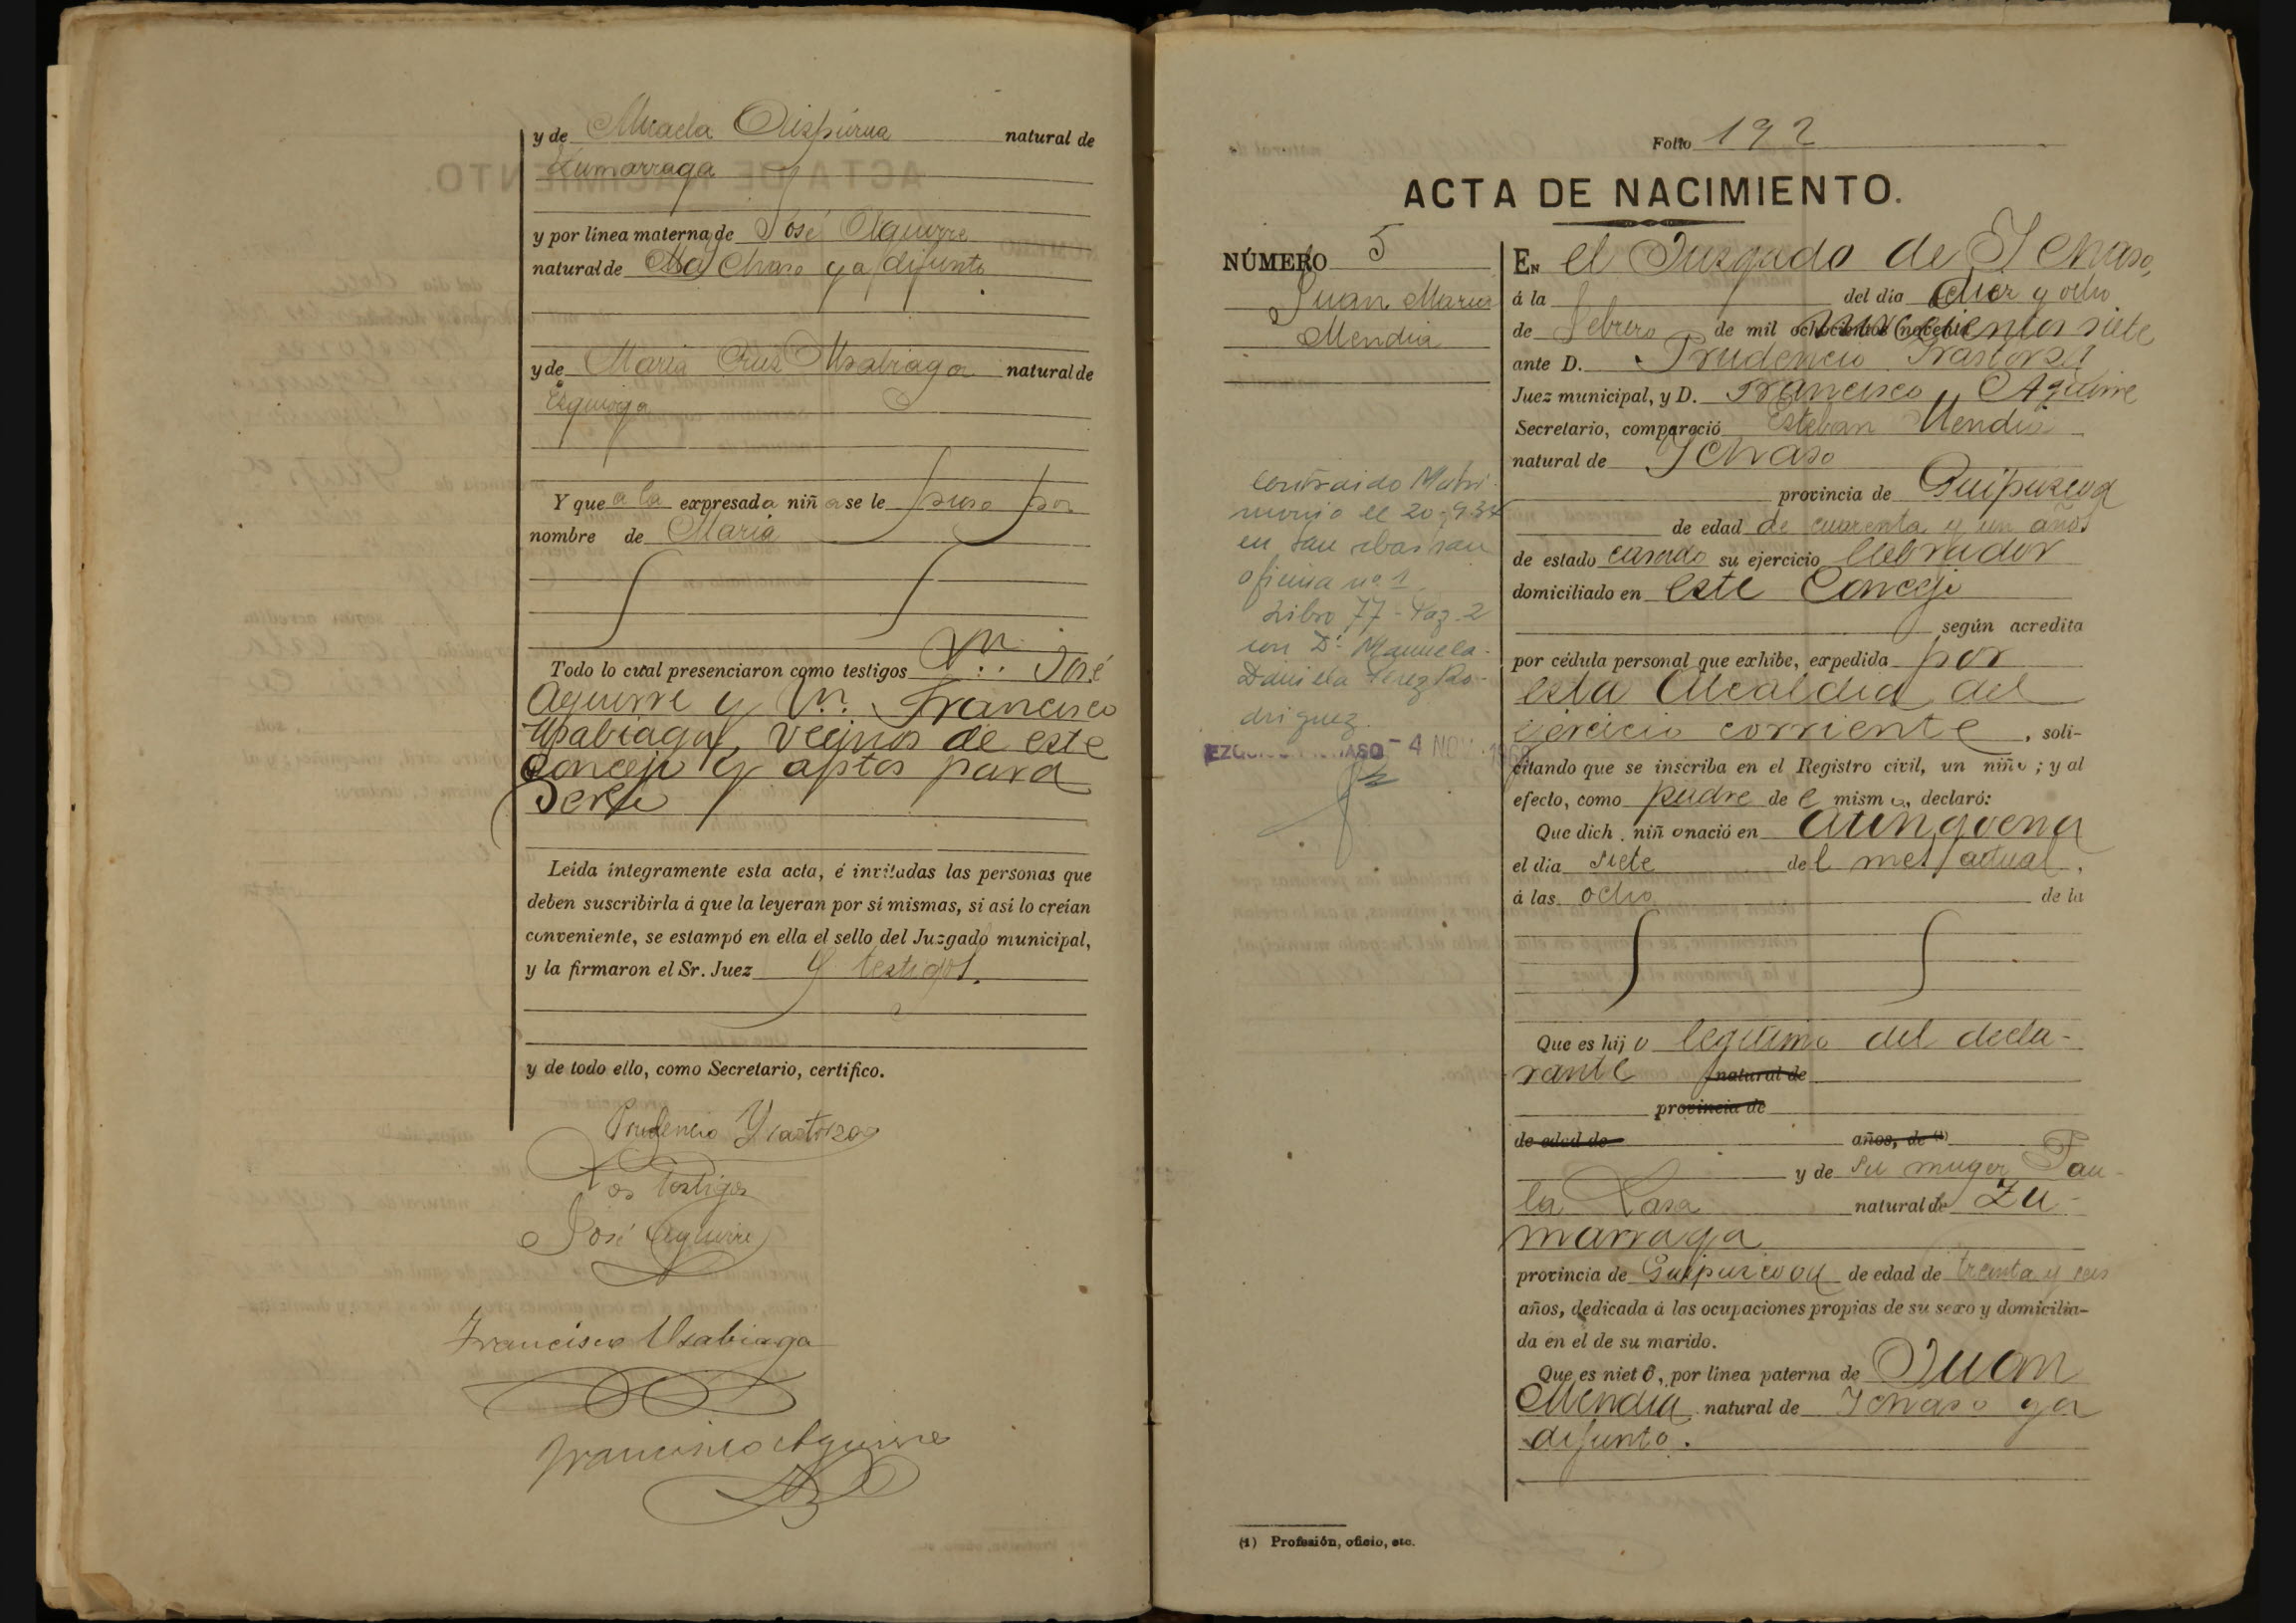 y de Micaela Oispúrua natural de
Zumarraga
y por línea materna de José Aguirre
natural de Ychaso ya difunto
y de María Cruz Usabiaga natural de
Ezquioga
Y que a la expresada niña se le puso por
nombre de María
Todo lo cual presenciaron como testigos José
Aguirre y Francisco
Usabiaga, vecinos de este
Concejo y aptos para
serlo
Leída íntegramente esta acta, é invitadas las personas que
deben suscribirla á que la leyeran por sí mismas, si así lo creían
conveniente, se estampó en ella el sello del Juzgado municipal,
y la firmaron el Sr. Juez y testigos.
y de todo ello, como Secretario, certifico.
Prudencio Yrastorza
Los testigos
José Aguirre
Francisco Usabiaga
Francisco Aguirre
Folio 192
ACTA DE NACIMIENTO.
NÚMERO 5
Juan Maria
Mendia
contraido Matri-
monio el 20-9-34
en San Sebastian
oficina nº 1
Libro 77 - Pag. 2
con Dª Manuela-
Daniela Perez Ro-
driguez.
EZQUIOGA-ICHASO - 4 NOV. 1968
EN el Juzgado de Ychaso,
á la del día diez y ocho
de Febrero de mil ochocientos noventa novecientos siete
ante D. Prudencio Yrastorza
Juez municipal, y D. Francisco Aguirre
Secretario, compareció Esteban Mendia
natural de Ychaso
provincia de Guipuzcoa
de edad de cuarenta y un años
de estado casado su ejercicio labrador
domiciliado en este Concejo
según acredita
por cédula personal que exhibe, expedida por
esta Alcaldia del
ejercicio corriente, soli-
citando que se inscriba en el Registro civil, un niño; y al
efecto, como padre de el mismo, declaró:
Que dich. niño nació en
el día siete del mes actual,
á las ocho de la
Que es hijo legitimo del decla-
rante natural de
provincia de
de edad de años, de (1)
y de su muger Pau-
la Lasa natural de Zu-
marraga
provincia de Guipuzcoa de edad de treinta y seis
años, dedicada á las ocupaciones propias de su sexo y domicilia-
da en el de su marido.
Que es nieto, por línea paterna de Juan
Mendia natural de Ychaso ya
difunto.
(1) Profesión, oficio, etc.